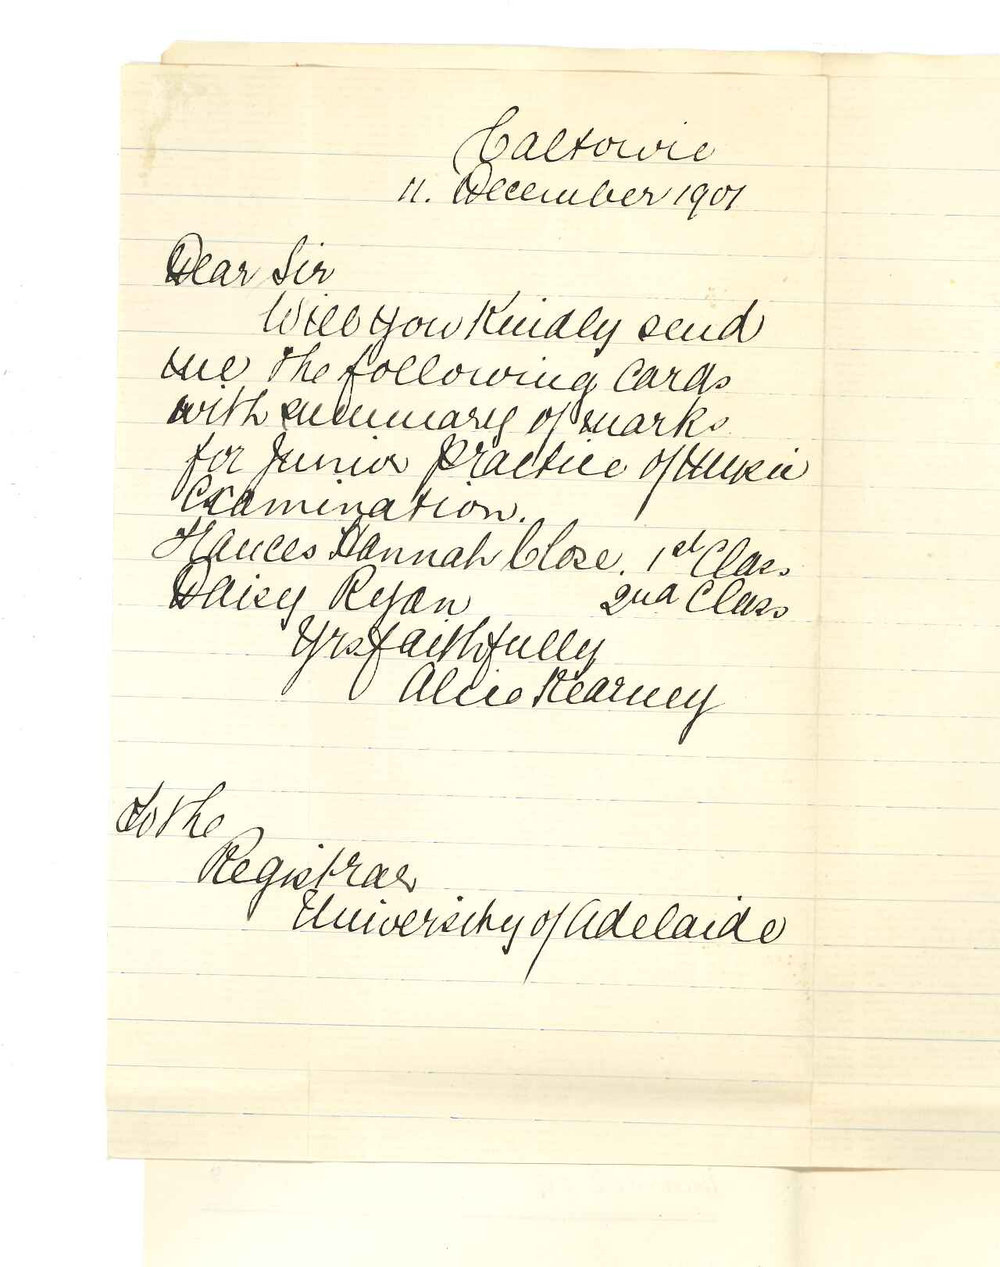 Caltowie
11. December 1901
Dear Sir
Will you Kindly send
me the following Cards
with summary of marks
for Junior Practice of Music
Examination.
Frances Hannah Close. 1st Class
Daisy Ryan 2nd Class
Yrs faithfully
Alice Kearney
To the
Registrar
University of Adelaide